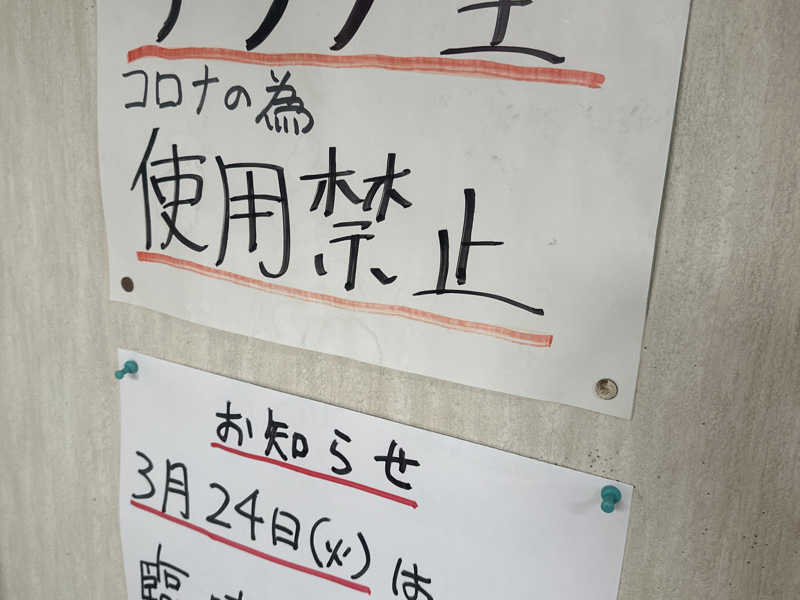 コロナの為
使用禁止
お知らせ
3月24日(火)は
臨